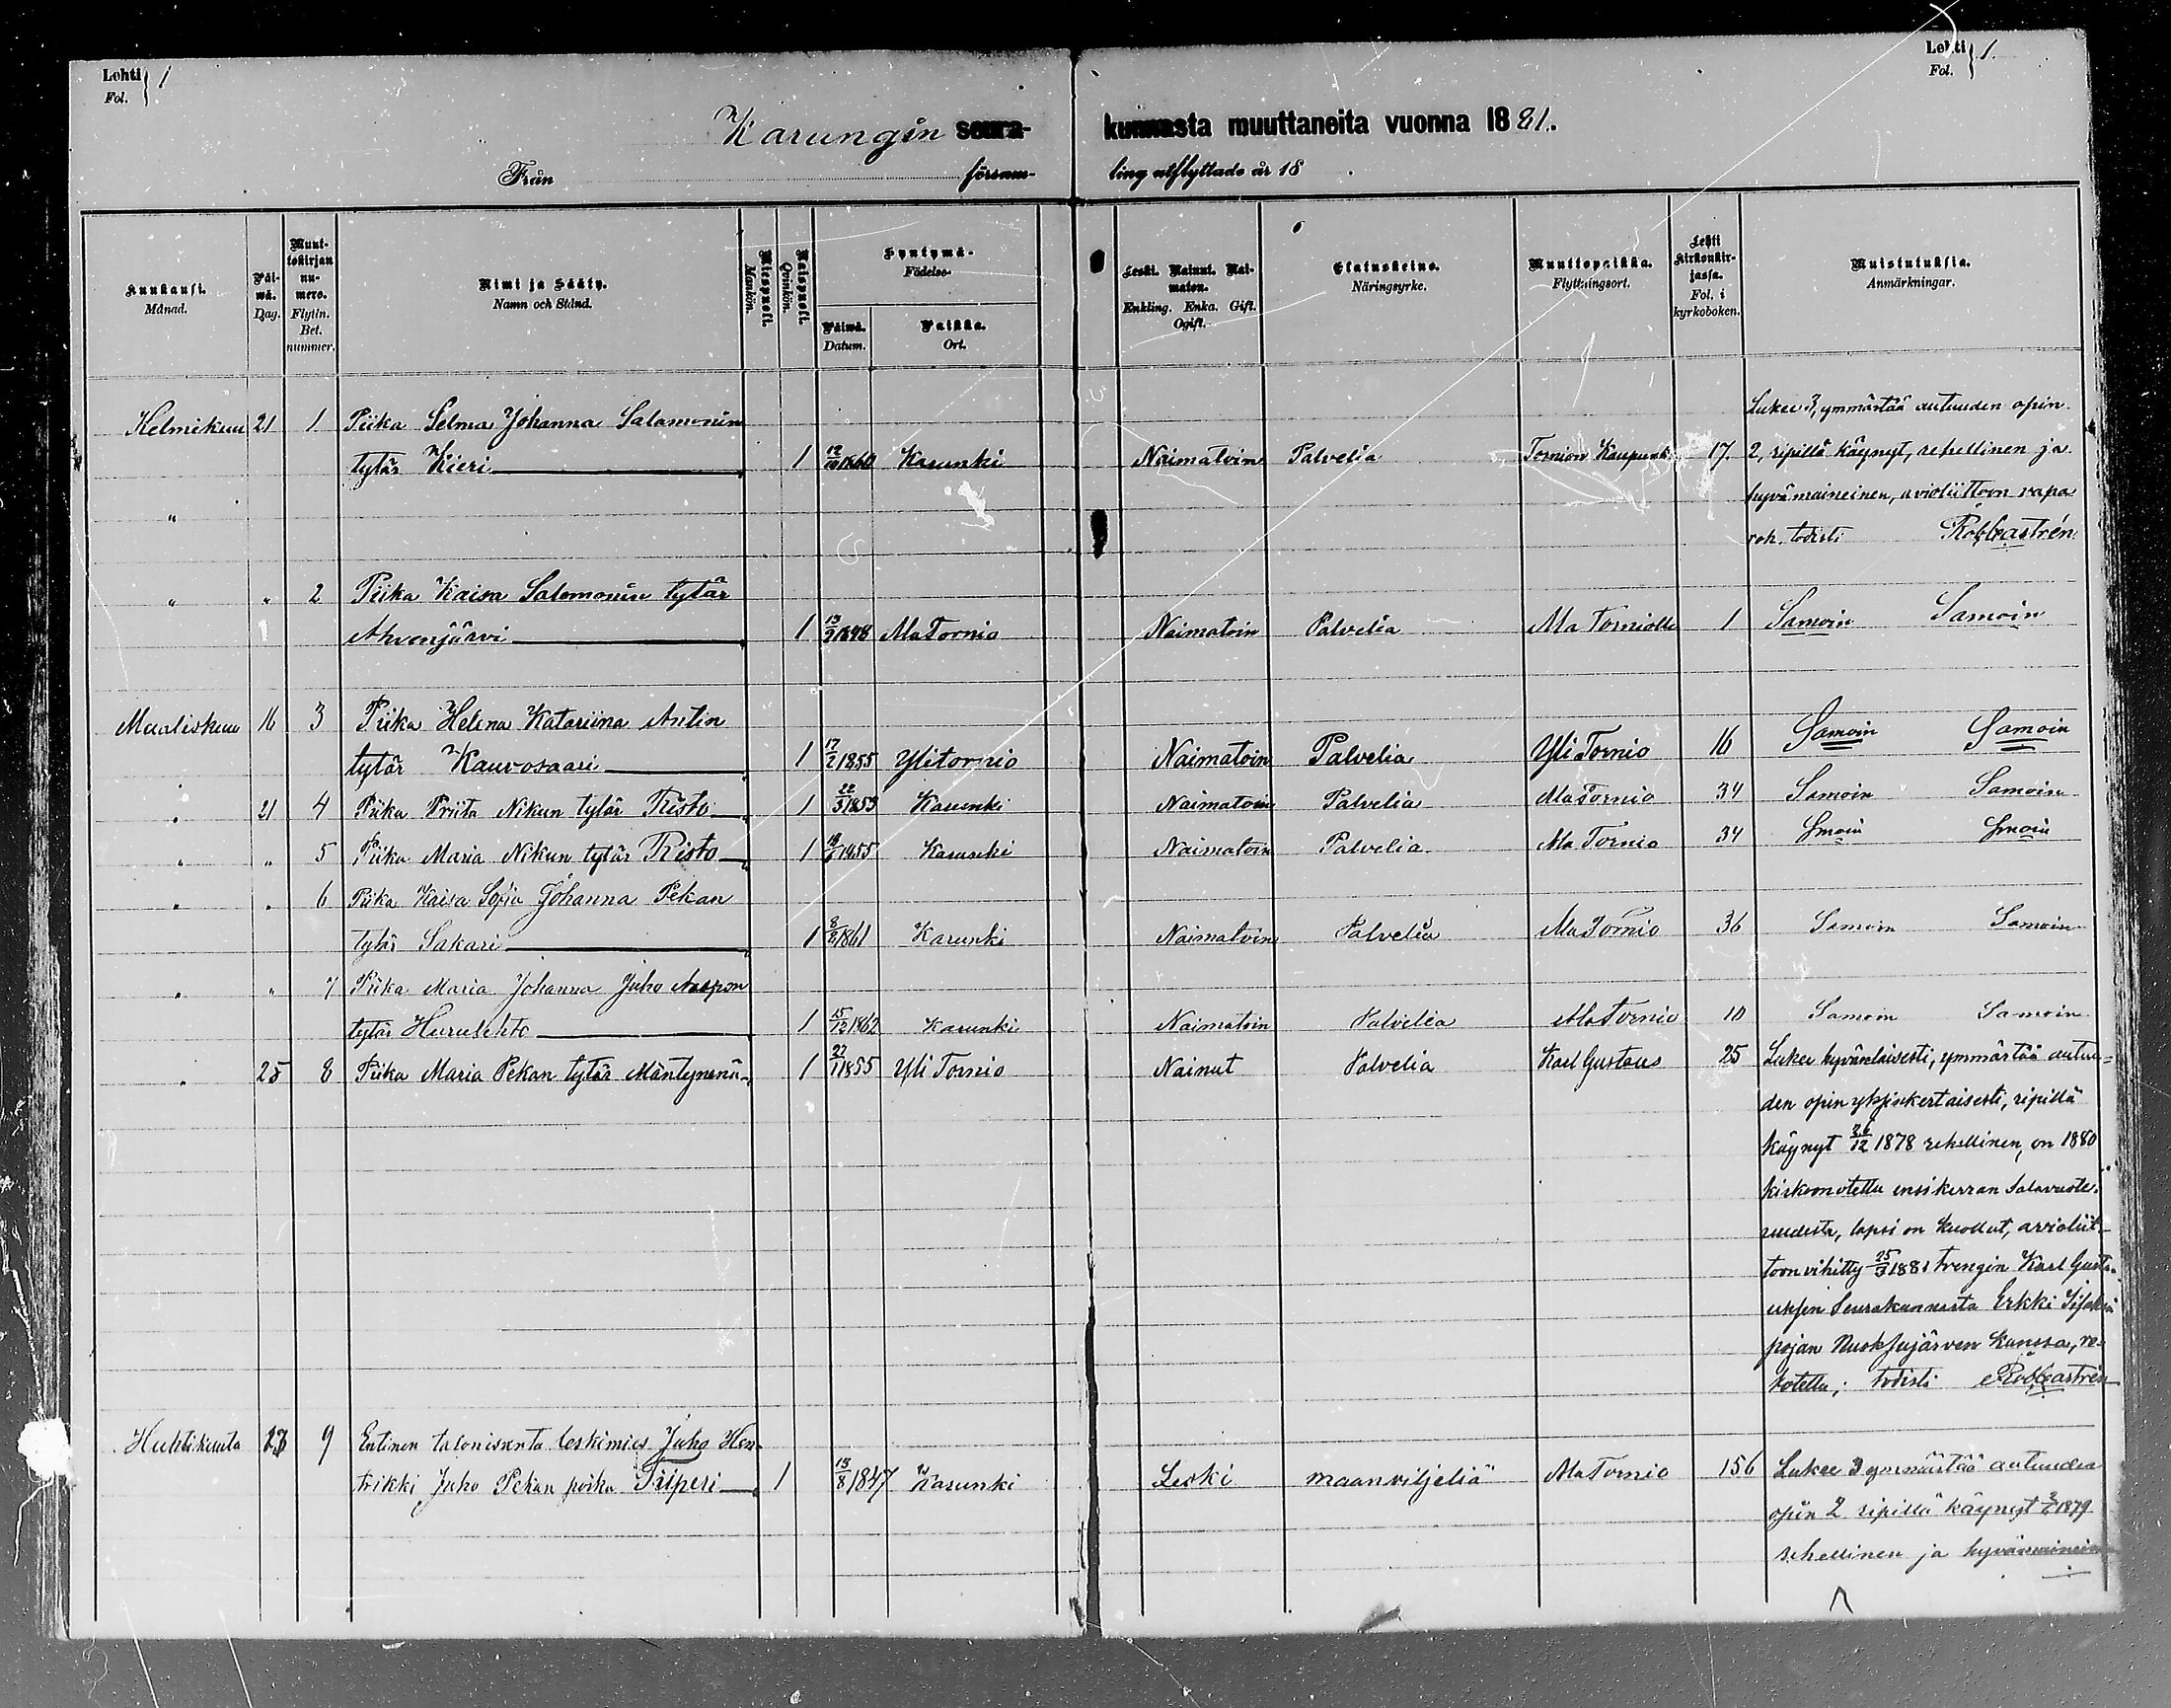 Lehti 1
Fol.
Lehti 1.
Fol.
Karungin seura- kunnasta muuttaneita vuonna 1881.
Från församling utflyttade år 18
Kuukausi. Månad.
Päivä. Dag.
Muuttokirjan numero. Flyttn. Bet. nummer.
Nimi ja Sääty. Namn och Stånd.
Miespuoli. Mankön.
Naispuoli. Qvinkön.
Syntymä- Födelse-
Päivä. Datum.
Paikka. Ort.
Leski. Nainut. Naimaton. Enkling. Enka. Gift. Ogift.
Elatuskeino. Näringsyrke.
Muuttopaikka. Flyttningsort.
Lehti kirkonkirjassa. Fol. i kyrkoboken.
Muistutuksia. Anmärkningar.
Helmikuu 21 1 Piika Selma Johanna Salamonin Lukee 3, ymmärtää autuuden opin
tytär Kieri 1 12/10 1860 Karunki Naimatoin Palvelia Tornion Kaupunk 17. 2, ripillä käynyt, rehellinen ja
hyvä maineinen, avioliittoon vapa
" rok. todisti Rob Castrén
" " 2 Piika Kaisa Salomonin tytär
Ahvenjärvi 1 13/9 1848 Ala Tornio Naimatoin Palvelia Ala Torniolle 1 Samoin Samoin
Maaliskuu 16 3 Piika Helena Katariina Antin
tytär Kauvosaari 1 17/2 1855 Ylitornio Naimatoin Palvelia Yli Tornio 16 Samoin Samoin
" 21 4 Piika Priita Nikun tytär Risto 1 22/3 1853 Karunki Naimatoin Palvelia Ala Tornio 34 Samoin Samoin
" " 5 Piika Maria Nikun tytär Risto 1 1855 Karunki Naimatoin Palvelia Ala Tornio 34 Smoin Smoin
" " 6 Piika Kaisa Sofia Johanna Pekan
tytär Sakari 1 8/2 1861 Karunki Naimatoin Palvelia Ala Tornio 36 Samoin Samoin
" " 7 Piika Maria Johanna Juho Aappon
tytär Hurulehto 1 15/12 1862 Karunki Naimatoin Palvelia Ala Tornio 10 Samoin Samoin
" 25 8 Piika Maria Pekan tytär Mäntynenä 1 22/1 1855 Yli Tornio Nainut Palvelia Karl Gustaus 25 Lukee hyvänlaisesti, ymmärtää autuu=
den opin yksinkertaisesti, ripillä
käynyt 26/12 1878 rehellinen, on 1880
kirkoonotettu ensikerran salavuote-
uudesta, lapsi on kuollut, avioliit-
toon vihitty 25/3 1881 trengin Karl Gusta-
uksen Seurakunnasta Erkki
pojan Nuoksujärven kanssa, ro-
kotettu; todisti Rob Castrén
Huhtikuuta 9 Entinen talonisäntä leskimies Juho Hen-
trikki Juho Pekan poika Piiperi 1 13/8 1847 Karunki Leski maanviljeliä Ala Tornio 156 Lukee 3 ymmärtää autuuden
opin 2 ripillä käynyt 1879
rehellinen ja hyvämainein